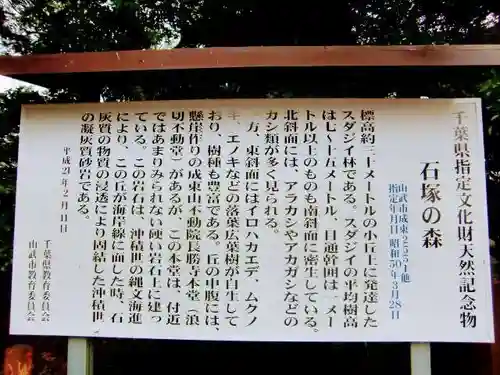 千葉県指定文化財天然記念物
石塚の森
山武市成東2551他
指定年月日 昭和50年3月28日
標高約三十メートルの小丘上に発達した
スダジイ林である。スダジイの平均樹高
は七～十五メートル、目通幹囲は一メー
トル以上のものも南斜面に密生している。
北斜面には、アラカシやアカガシなどの
カシ類が多く見られる。
一方、東斜面にはイロハカエデ、ムクノ
キ、エノキなどの落葉広葉樹が自生して
おり、樹種も豊富である。丘の中腹には、
懸崖作りの成東山不動院長勝寺本堂（浪
切不動堂）があるが、この本堂は、付近
ではあまりみられない硬い岩石上に建っ
ている。この岩石は、沖積世の縄文海進
により、この丘が海岸線に面した時、石
灰質の物質の浸透により固結した沖積世
の凝灰質砂岩である。
平成21年2月11日
千葉県教育委員会
山武市教育委員会